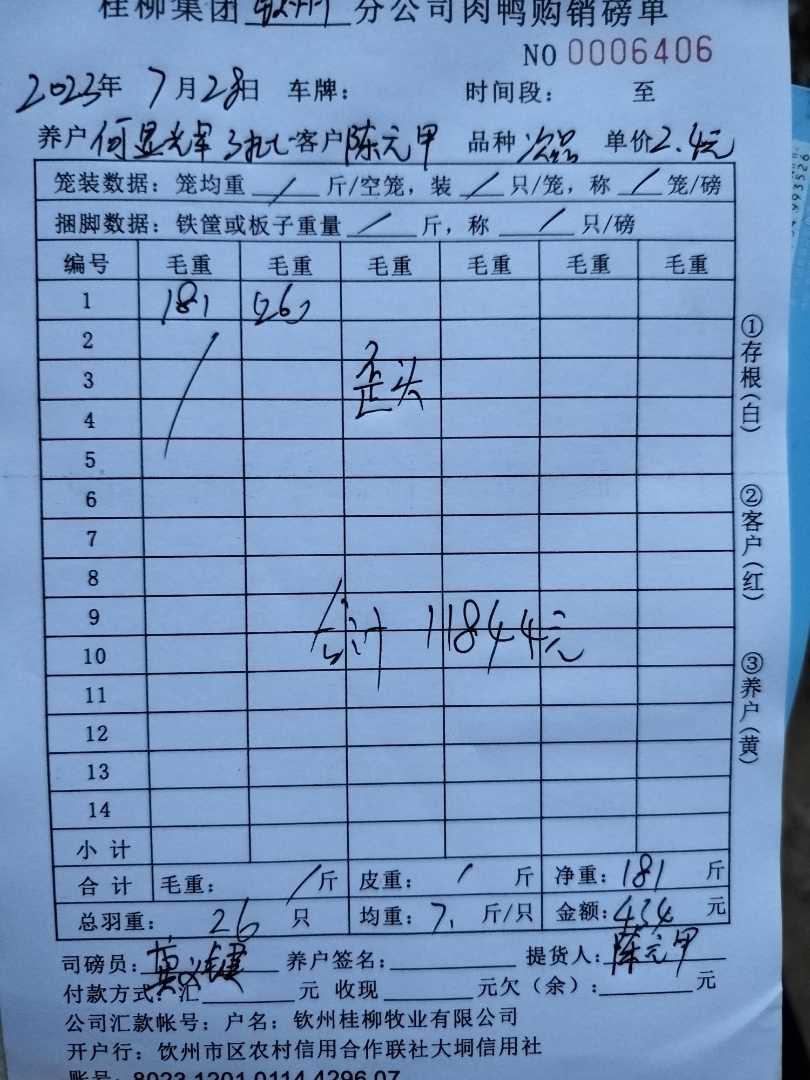 桂柳集团 钦州 分公司肉鸭购销磅单
NO 0006406
2023年 7月28日 车牌： 时间段： 至
养户 何显光 客户 陈元甲 品种 次品 单价 2.4元
笼装数据：笼均重 / 斤/空笼，装 / 只/笼，称 / 笼/磅
捆脚数据：铁筐或板子重量 / 斤，称 / 只/磅
编号 毛重 毛重 毛重 毛重 毛重 毛重
1 181
2
3 歪头
4
5
6
7
8
9
10 合计 11844元
11
12
13
14
小计
合计 毛重： / 斤 皮重： / 斤 净重：181 斤
总羽重： 26 只 均重：7. 斤/只 金额：434 元
司磅员： 养户签名： 提货人：陈元甲
付款方式：汇 元 收现 元欠（余）： 元
公司汇款帐号：户名：钦州桂柳牧业有限公司
开户行：钦州市区农村信用合作联社大垌信用社
账号：8023 1201 0114 4296 07
①存根（白）
②客户（红）
③养户（黄）